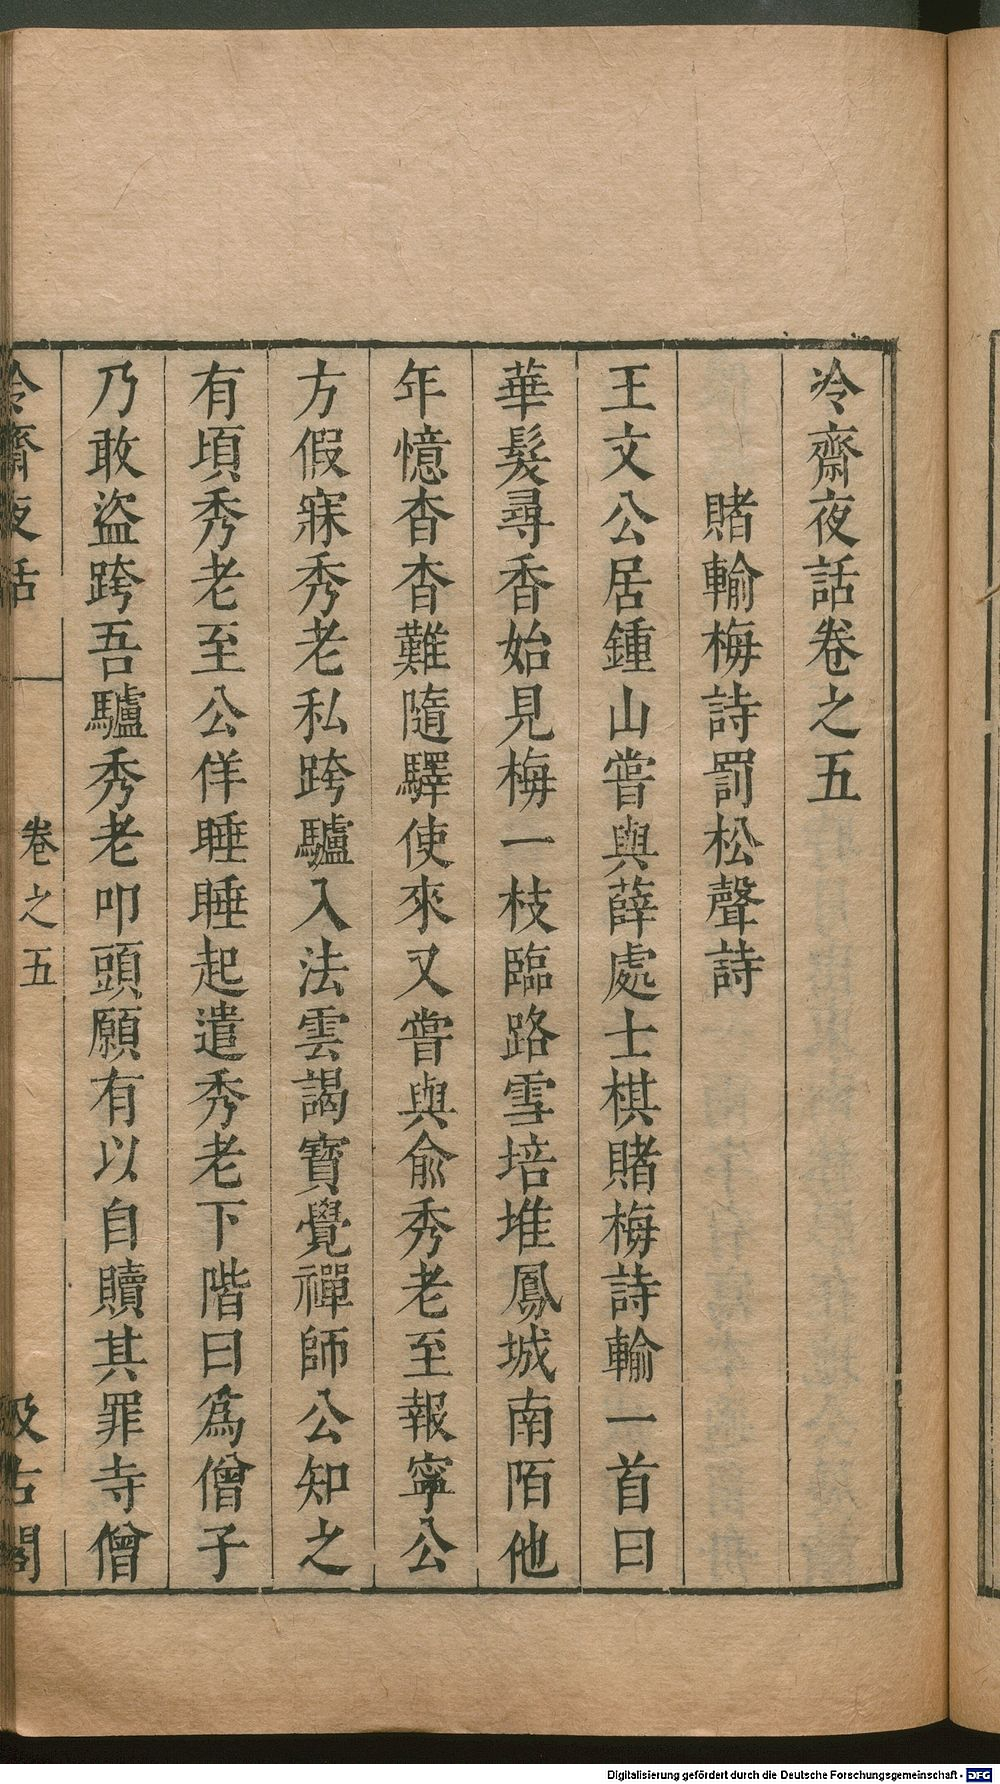 冷齋夜話卷之五
賭輸梅詩罰松聲詩
王文公居鍾山嘗與薛處士棋賭梅詩輸一首曰
華髮尋香始見梅一枝臨路雪培堆鳳城南陌他
年憶杳杳難隨驛使來又嘗與俞秀老至報寧公
方假寐秀老私跨驢入法雲謁寶覺禪師公知之
有頃秀老至公佯睡睡起遣秀老下階曰為僧子
乃敢盜跨吾驢秀老叩頭願有以自贖其罪寺僧
冷齋夜話
卷之五
汲古閣
Digitalisierung gefördert durch die Deutsche Forschungsgemeinschaft - DFG